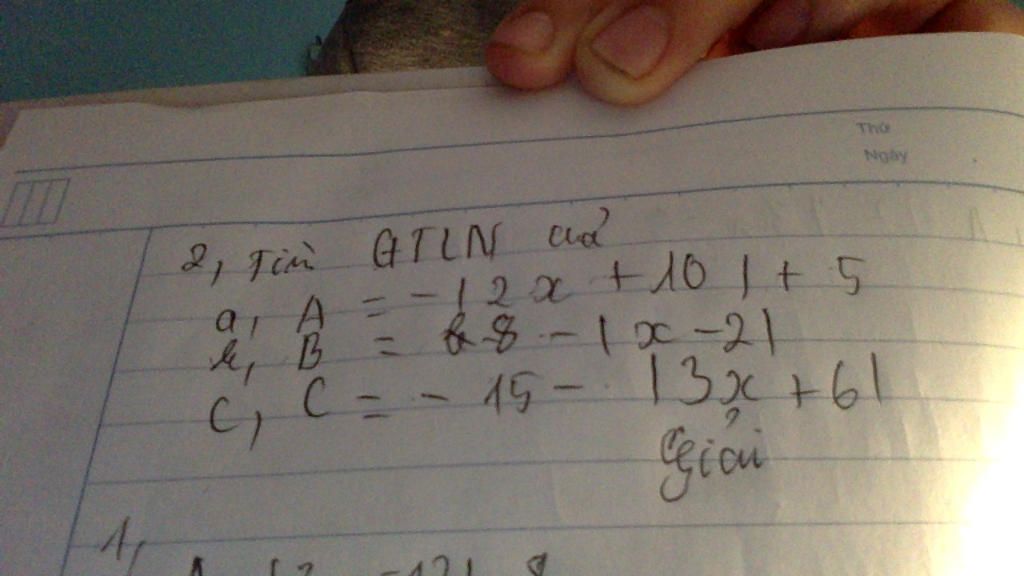 Thứ
Ngày
2, Tìm GTLN của
a, A = -|2x + 10| + 5
b, B = 8 - |x - 2|
C, C = - 15 - |3x + 6|
Giải
1,